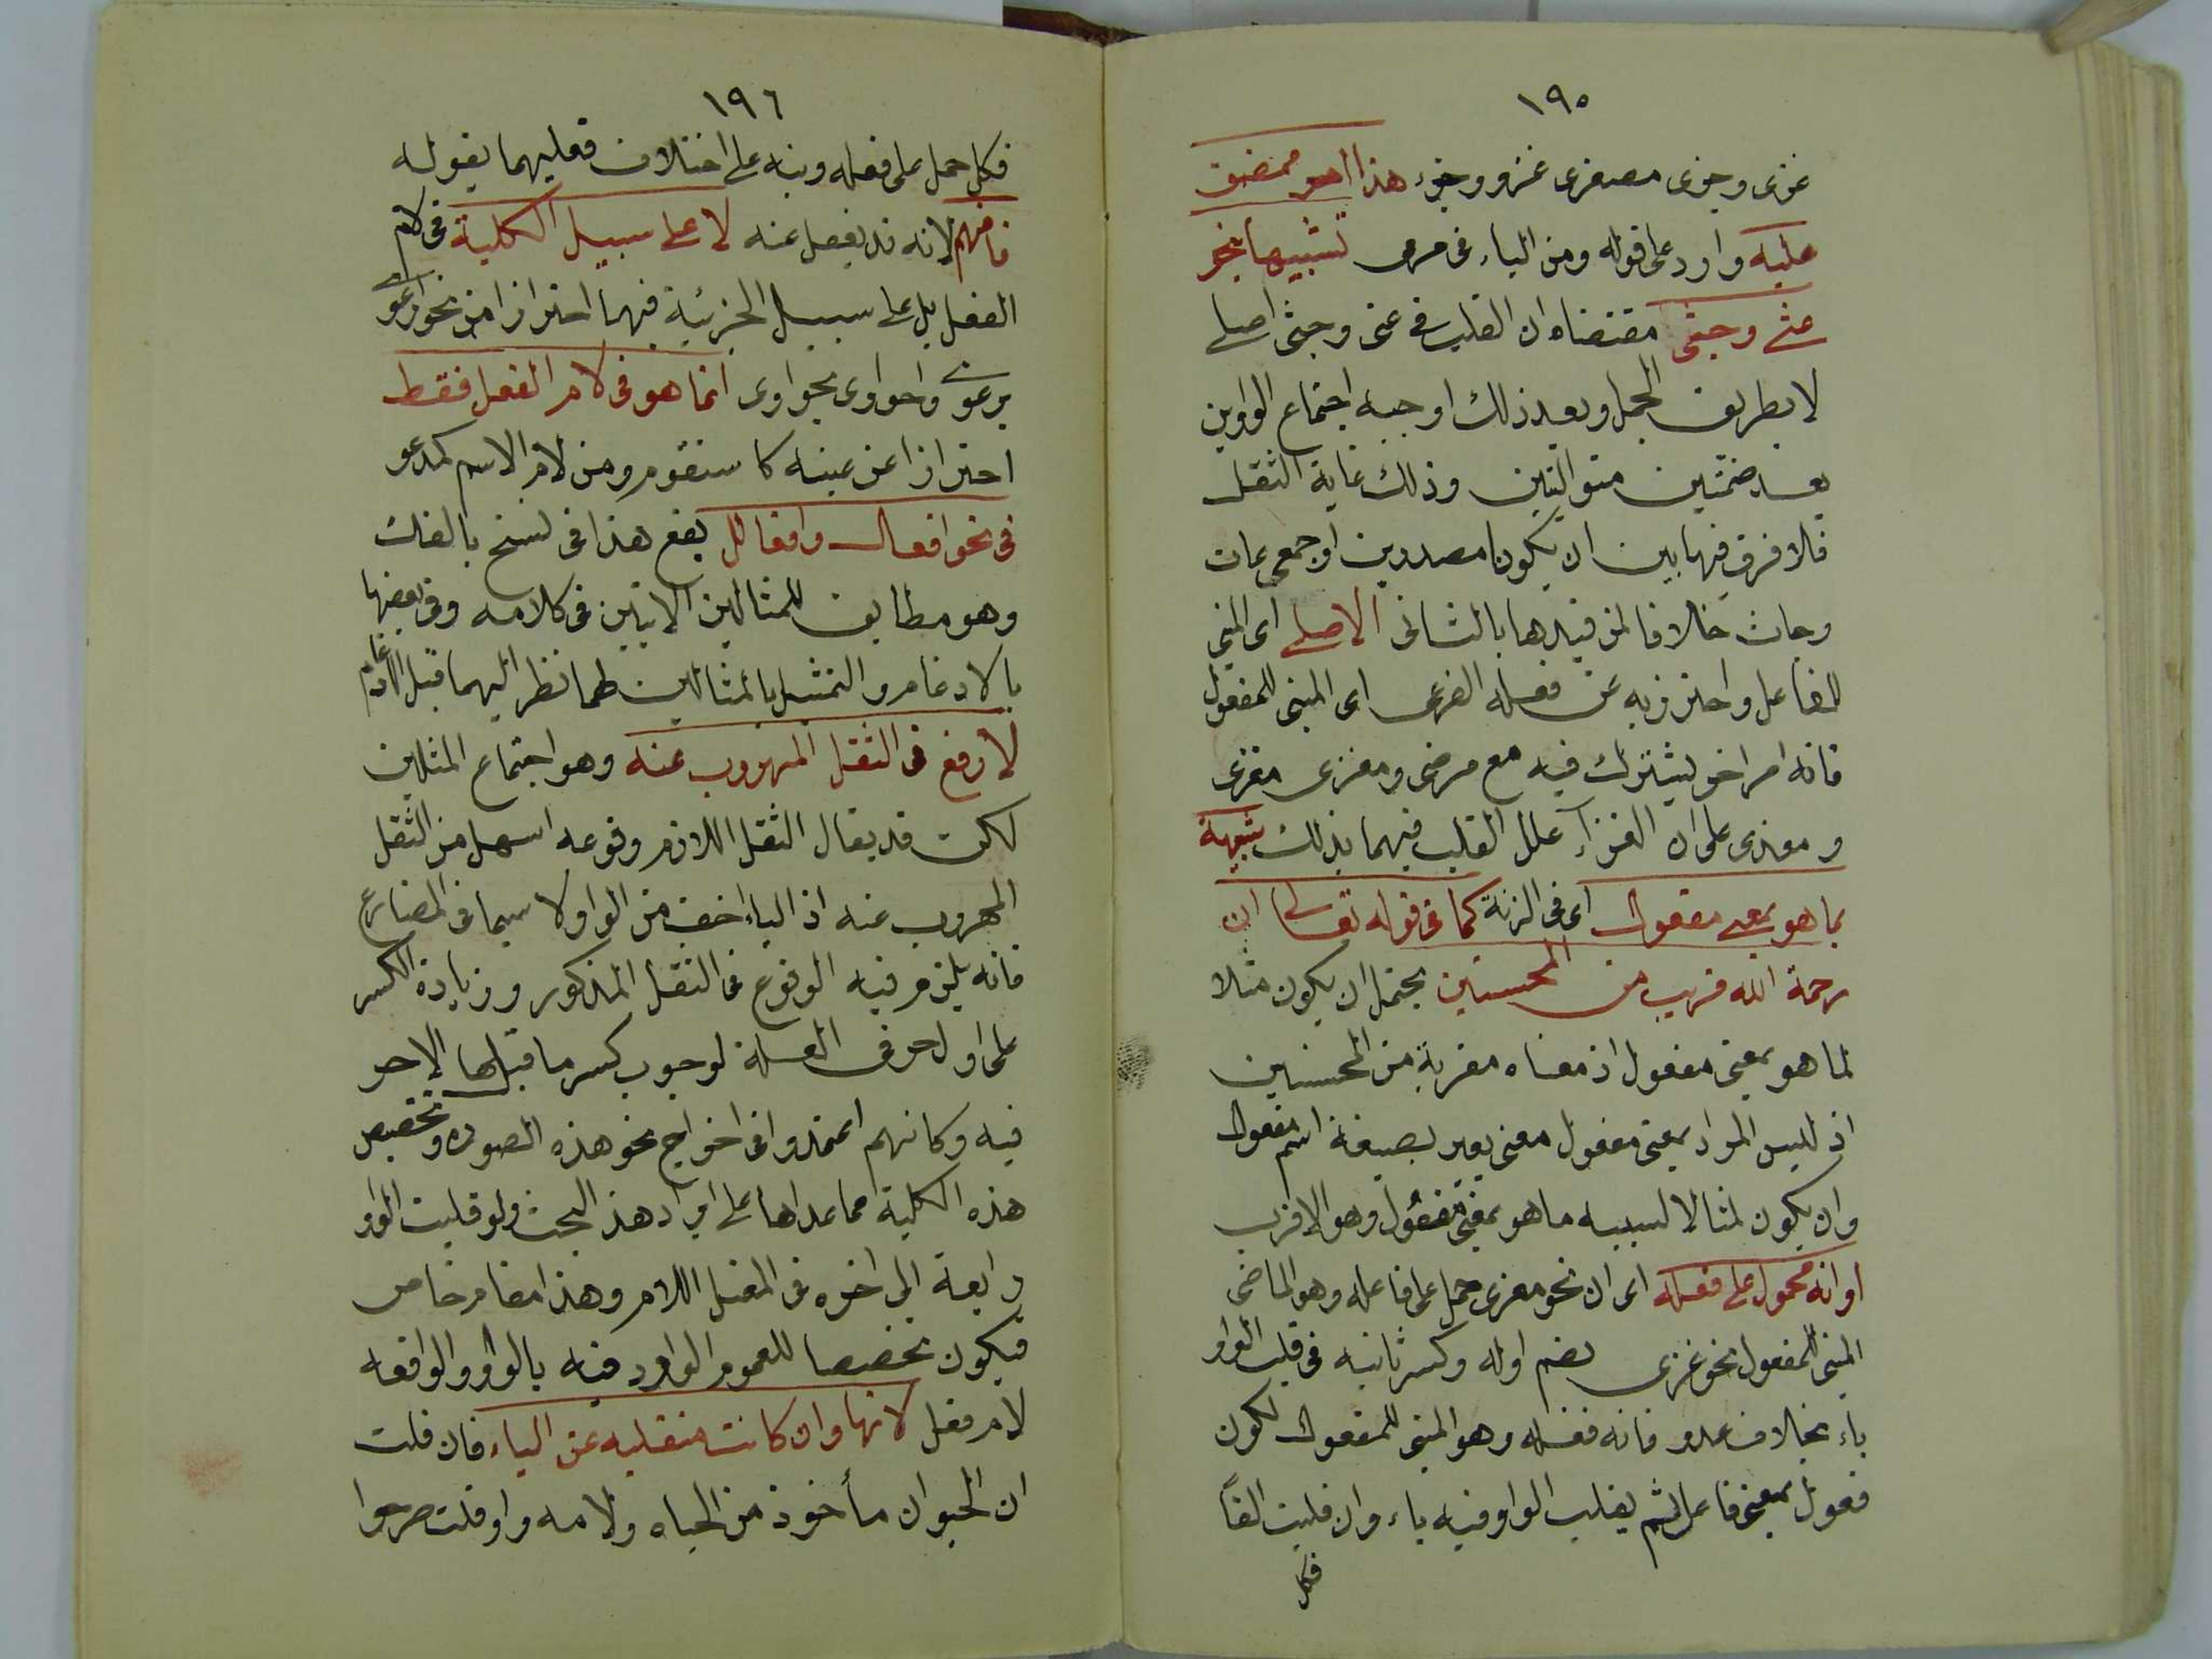 ١٩٥
غزى وجزى مصغرى غزو وجزء هذا
عليه واورد على قوله ومن الياء فى مرمى تشبيها بنحو
عثى وجثى مقتضاه ان القلب فى عتى وجثى اصلى
لا بطريق الحمل وبعد ذلك اوجبه اجتماع الواوين
بعد ضمتين متواليتين وذلك غاية الثقل
فلا فرق فيها بين ان يكونا مصدرين او جمعى عات
وجاث خلافا لمن قيدها بالثانى الاصلى اى المبنى
للفاعل واحترز به عن فعله الفرعى اى المبنى للمفعول
فانه امر اخر يشترك فيه مع مرضى ومغزى مغزى
ومغزى على ان الفرآء علل القلب فيهما بذلك شبيهة
بما هو بمعنى مفعول اى فى الزنة كما فى قوله تعالى ان
رحمة الله قريب من المحسنين يحتمل ان يكون مثلا
لما هو بمعنى مفعول اذ معناه مقربة من المحسنين
اذ ليس المراد بمعنى مفعول معنى يعبر بصيغة اسم مفعول
وان يكون مثالا لشبيه ما هو بمعنى مفعول وهو الاقرب
او انه محمول على فعله اى ان نحو مغزى حمل على فاعله وهو الماضى
المبنى للمفعول نحو غزى بضم اوله وكسر ثانيه فى قلب الواو
ياء بخلاف عدو فانه فعله وهو المبنى للمفعول لكون
فعول بمعنى فاعل لم يقلب الواو فيه ياء وان قلبت الفاً
فكل
١٩٦
فكل حمل على فعله ونبه على اختلاف فعليهما بقوله
فافهم لانه قد يغفل عنه لا على سبيل الكلية فى لام
الفعل بل على سبيل الجزئية فيهما احترازا من نحو ارعوى
يرعوى واحواوى يحواوى انما هو فى لام الفعل فقط
احترازا عن عينه كا ستقوم ومن لام الاسم كمدعو
فى نحو افعال وافعالل يقع هذا فى نسخ بالفك
وهو مطابق للمثالين الاتيين فى كلامه وفى بعضها
بالادغام والتمثيل بالمثالين لهما نظر اليهما قبل الادغام
لا وقع فى الثقل المهروب عنه وهو اجتماع المثلين
لكن قد يقال الثقل اللازم وقوعه اسهل من الثقل
المهروب عنه اذ الياء اخف من الواو لا سيما فى المضارع
فانه يلزم فيه الوقوع فى الثقل المذكور وزيادة الكسر
على اول حرفى العلة لوجوب كسر ما قبل الاحر
فيه وكانهم اعتمدوا فى اخراج نحو هذه الصوره وتخصيص
هذه الكلية مما عداها على افراد هذ البحث ولو قلبت الواو
رابعة الى اخره فى المعتل اللام وهذا مقام خاص
فيكون تخصيصا للعموم الوارد فيه بالواو الواقعه
لام فعل لانها وان كانت منقلبه عن الياء فان قلت
ان الحيوان مأخوذ من الحياه ولامه واو قلت صرحوا